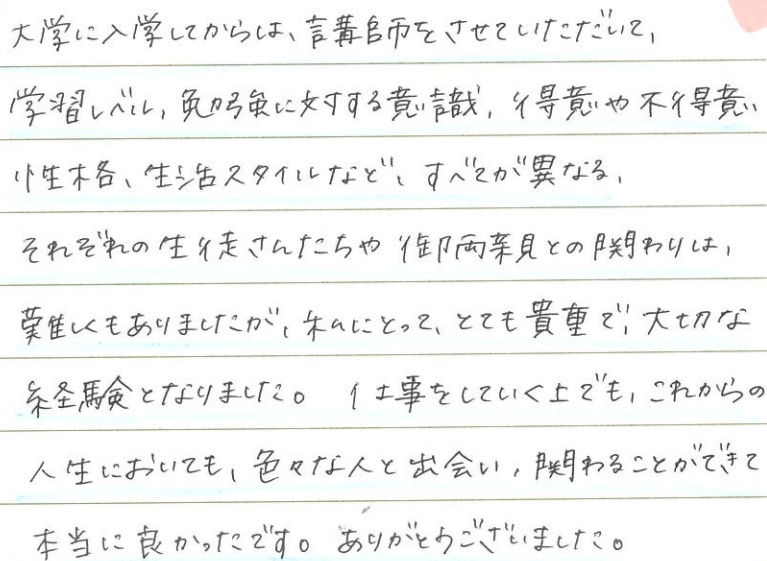 大学に入学してからは、講師をさせていただいて、
学習レベル、勉強に対する意識、得意や不得意、
性格、生活スタイルなど、すべてが異なる、
それぞれの生徒さんたちや御両親との関わりは、
難しくもありましたが、私にとって、とても貴重で、大切な
経験となりました。 仕事をしていく上でも、これからの
人生においても、色々な人と出会い、関わることができて
本当に良かったです。ありがとうございました。